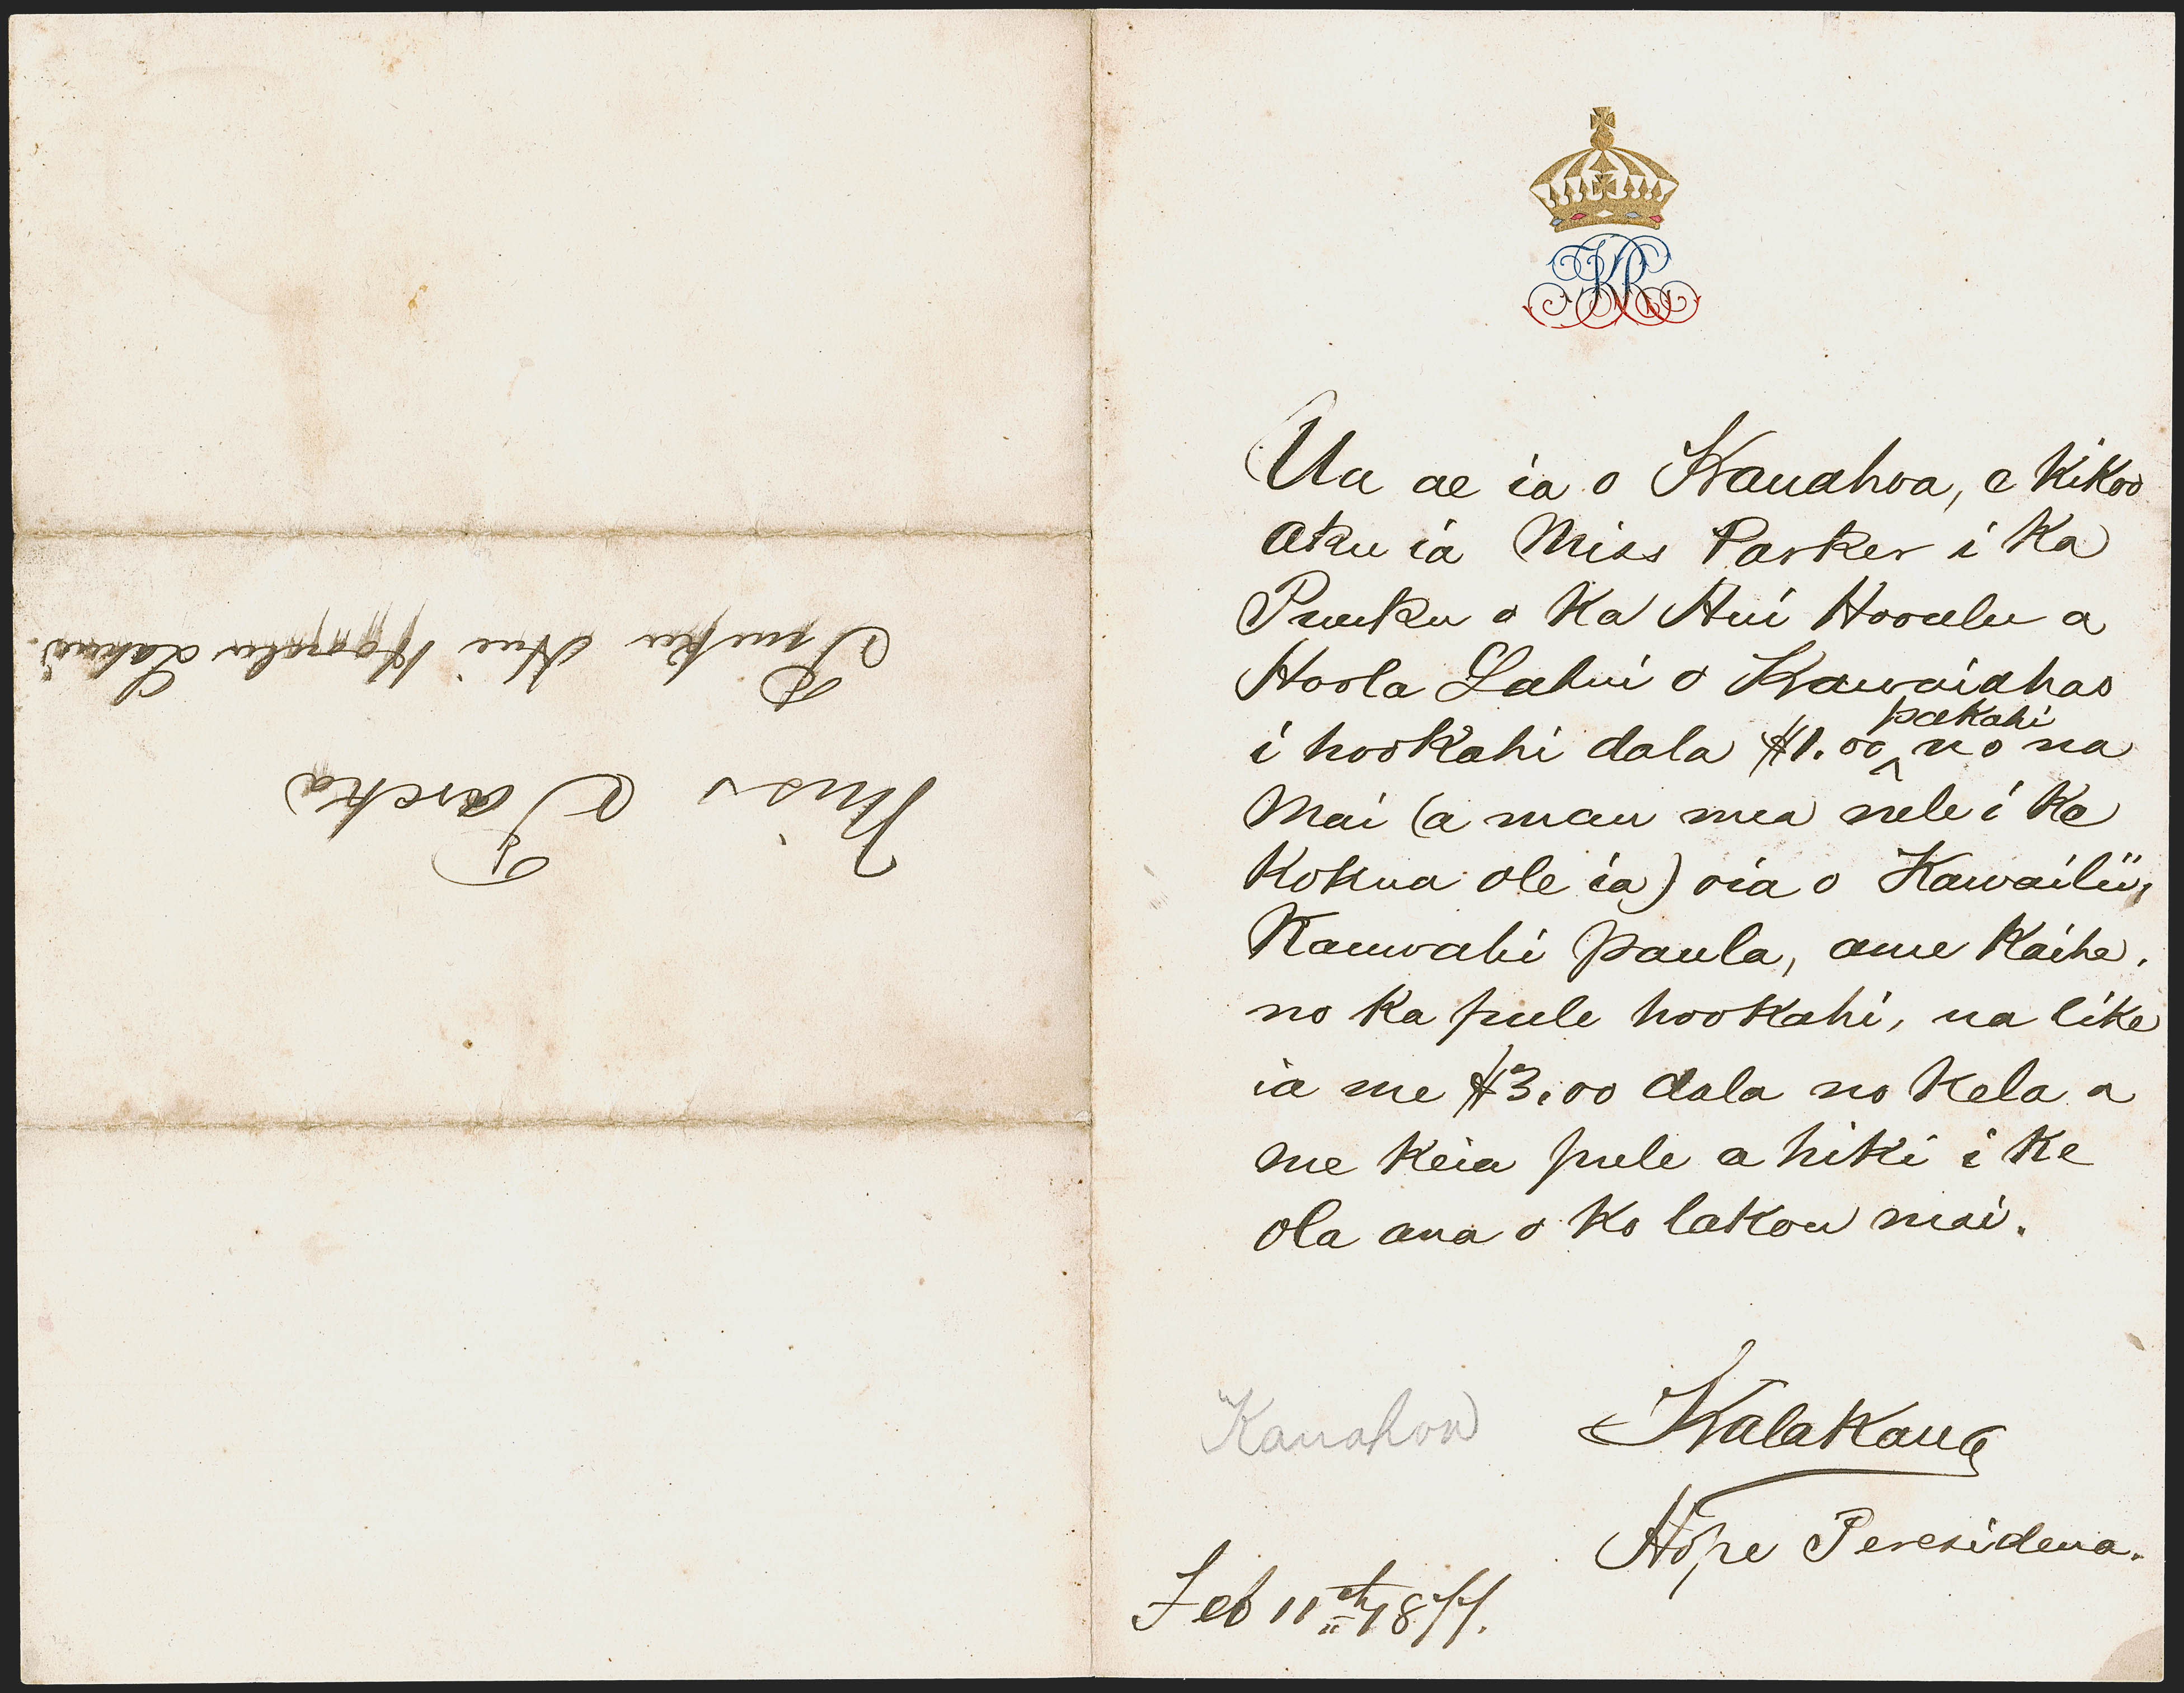 KR
Ua ae ia o Kauahoa, e Kikoo
aku ia Miss Parker i Ka
Puuku o Ka Hui Hooulu a
Hoola Lahui o Kawaiahao
i hookahi dala $1.00 pakahi no na
Mai (a mau mea nele i Ke
Kokua ole ia) oia o Kawailiii,
Kauwahi paula, ame Kaihe.
no Ka pule hookahi, ua like
ia me $3.00 dala no Kela a
me Keia pule a hiki i Ke
ola ana o Ko lakou mai.
Kalakaua
Hope Peresidena.
Kauahoa
Feb 11th 1877.
Miss Pareka
Puuku Hui Hooulu Lahui.